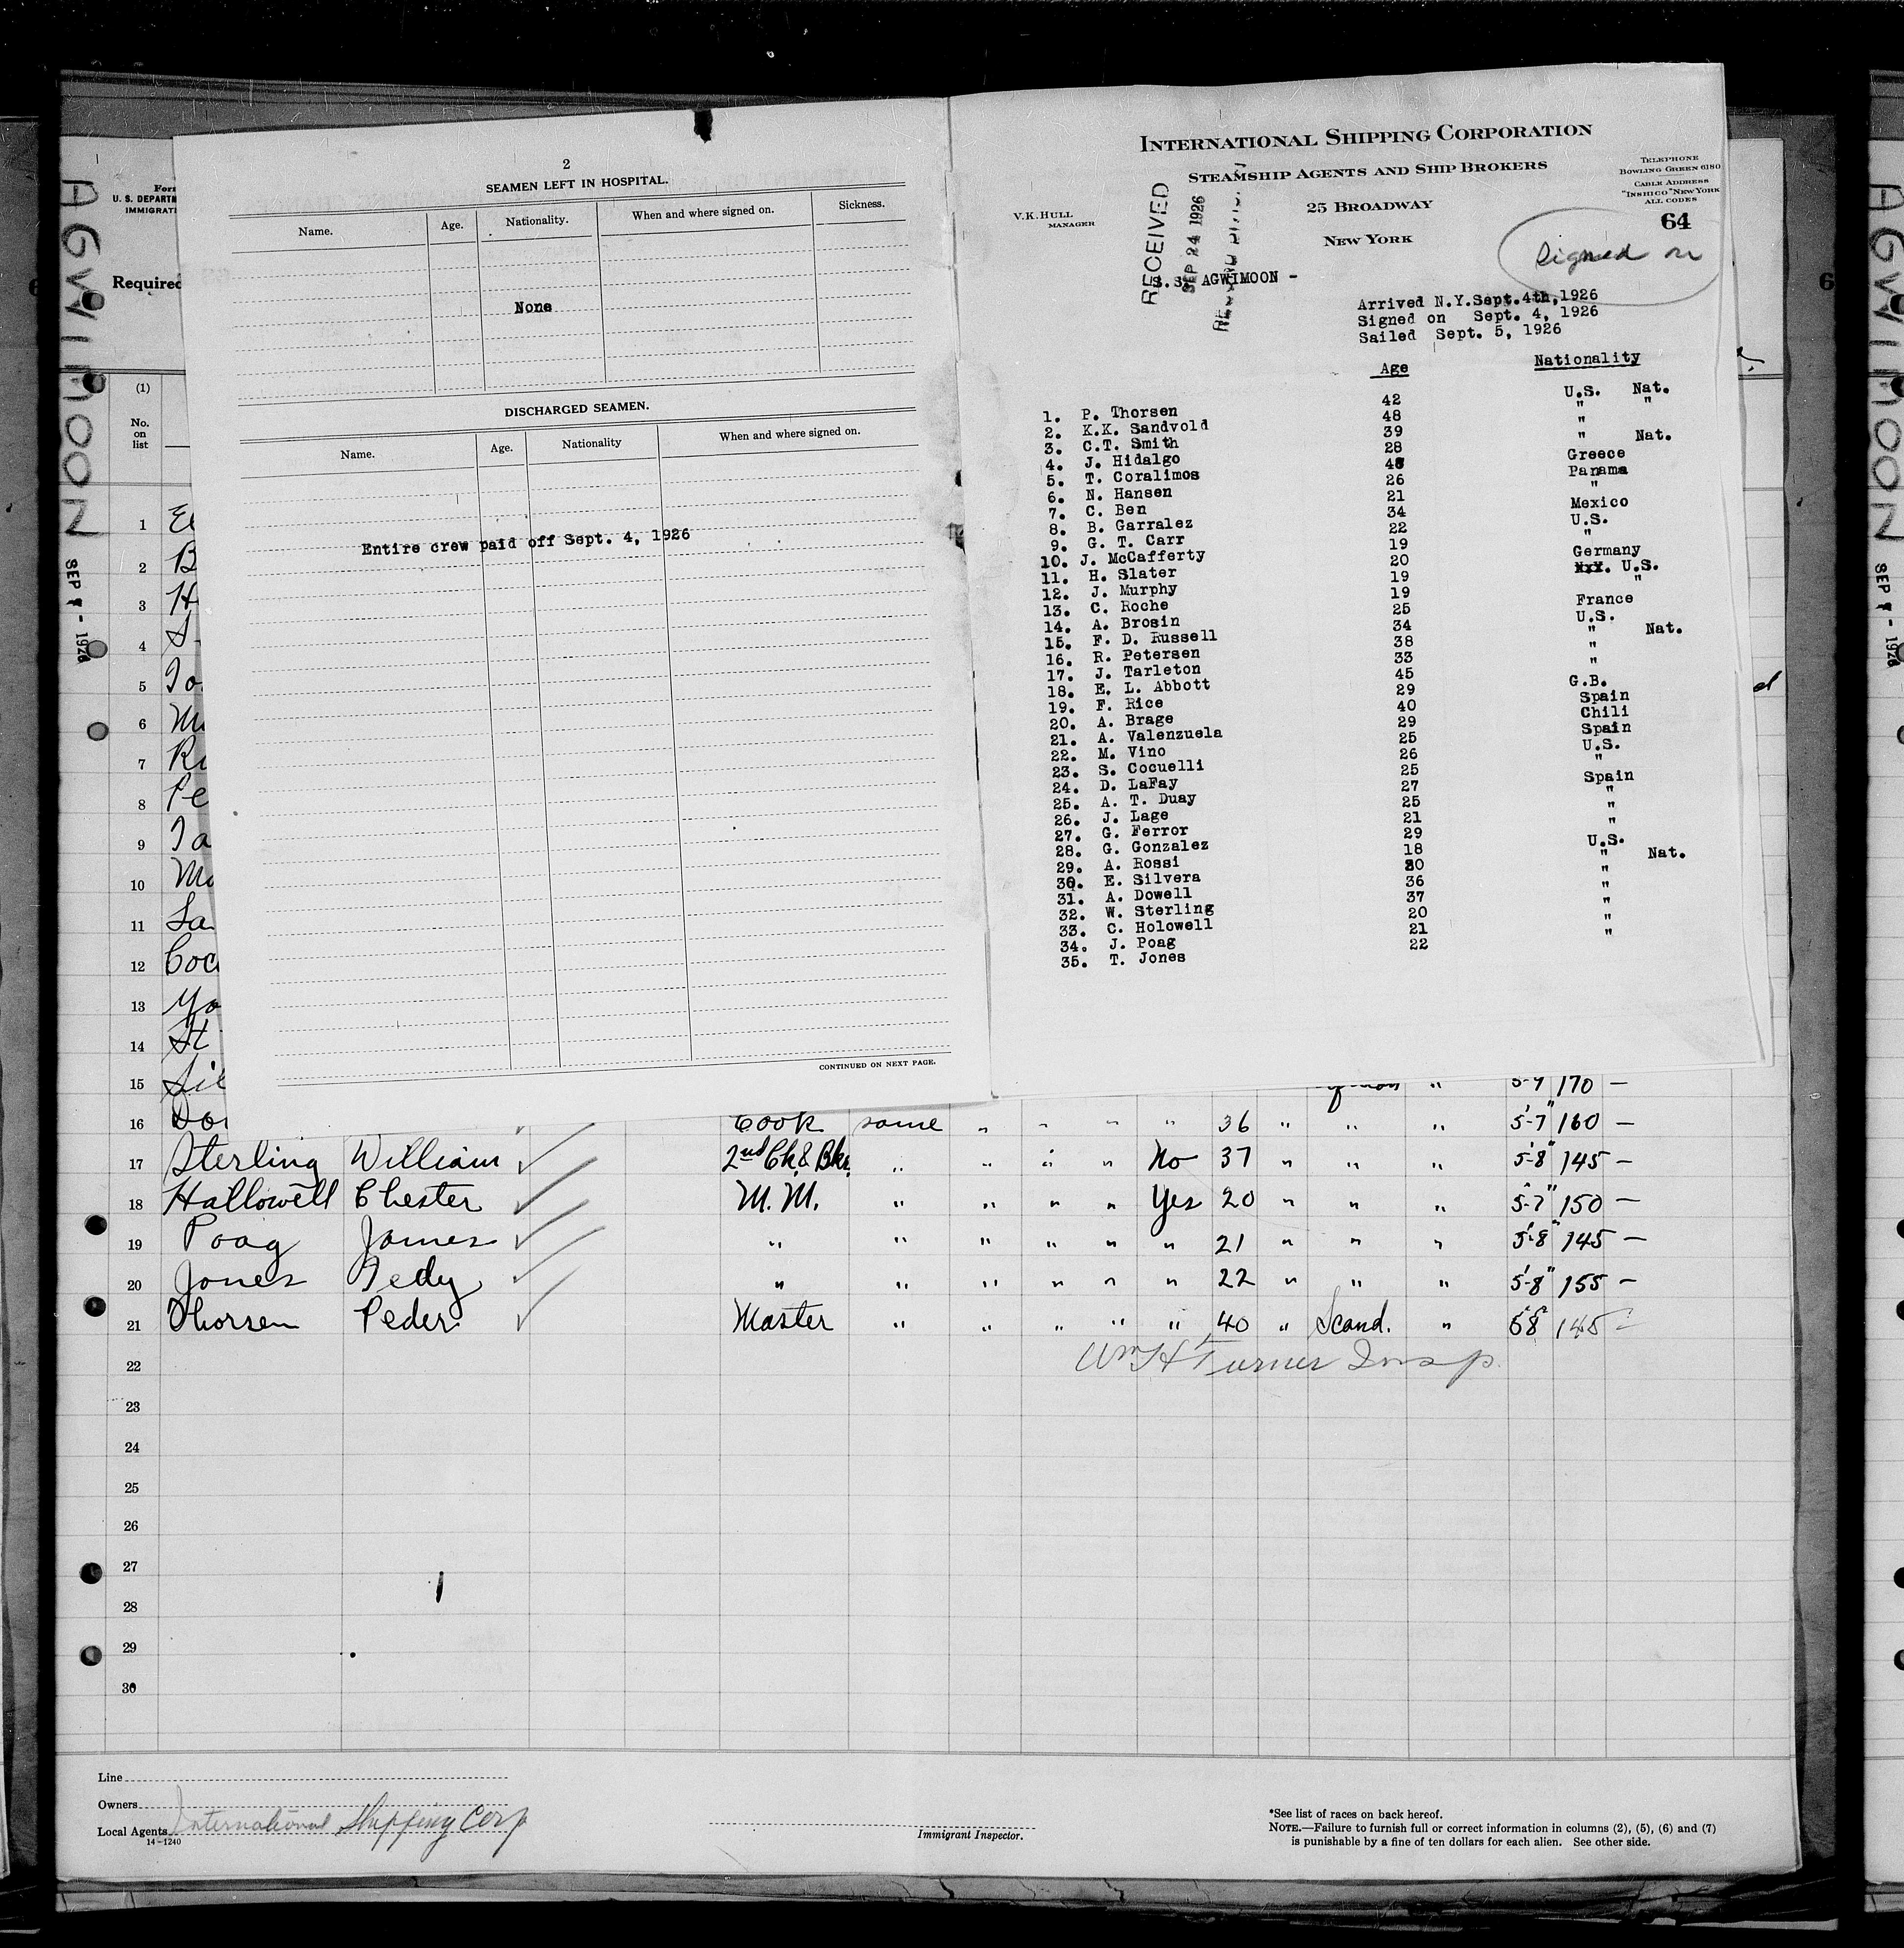 AGWIMOON
SEP - 1926
Form
U. S. DEPARTM
IMMIGRATI
Required
(1)
No. on list
2
SEAMEN LEFT IN HOSPITAL.
Name. Age. Nationality. When and where signed on. Sickness.
None
DISCHARGED SEAMEN.
Name. Age. Nationality When and where signed on.
Entire crew paid off Sept. 4, 1926
CONTINUED ON NEXT PAGE.
INTERNATIONAL SHIPPING CORPORATION
STEAMSHIP AGENTS AND SHIP BROKERS
25 BROADWAY
NEW YORK
V.K.HULL
MANAGER
TELEPHONE
BOWLING GREEN 6180
CABLE ADDRESS
"INSHICO" NEW YORK
ALL CODES
64
Signed on
RECEIVED
SEP 24 1926
S.S. AGWIMOON -
Arrived N.Y.Sept.4th,1926
Signed on Sept. 4, 1926
Sailed Sept. 5, 1926
Age Nationality
1. P. Thorsen 42 U.S. Nat.
2. K.K. Sandvold 48 " "
3. C.T. Smith 39 "
4. J. Hidalgo 28 " Nat.
5. T. Coralimos Greece
6. N. Hansen 26 Panama
7. C. Ben 21 "
8. B. Garralez 34 Mexico
9. G. T. Carr 22 U.S.
10. J. McCafferty 19 "
11. H. Slater 20 Germany
12. J. Murphy 19 U.S.
13. C. Roche 19 "
14. A. Brosin 25 France
15. F. D. Russell 34 U.S.
16. R. Petersen 38 " Nat.
17. J. Tarleton 33 "
18. E. L. Abbott 45 "
19. F. Rice 29 G.B.
20. A. Brage 40 Spain
21. A. Valenzuela 29 Chili
22. M. Vino 25 Spain
23. S. Cocuelli 26 U.S.
24. D. LaFay 25 "
25. A. T. Duay 27 Spain
26. J. Lage 25 "
27. G. Ferror 21 "
28. G. Gonzalez 29 "
29. A. Rossi 18 U.S.
30. E. Silvera " Nat.
31. A. Dowell 36 "
32. W. Sterling 37 "
33. C. Holowell 20 "
34. J. Poag 21 "
35. T. Jones 22 "
1 El
2 B
3 H
4 S
5 Jo
6 Mu
7 Ri
8 Pe
9 Ta
10 Mc
11 La
12 Coc
13 Mo
14 St
15 Sil 170 —
16 Do Cook same " " " " 36 " " " 5-7" 160 —
17 Sterling William 2nd Ck & Bkr. " " " " No 37 " " " 5'-8" 145 —
18 Hallowell Chester M.M. " " " " Yes 20 " " " 5-7" 150 —
19 Poag James " " " " " " 21 " " " 5'-8" 145 —
20 Jones Tedy " " " " " " 22 " " " 5'-8" 155 —
21 Thorsen Peder Master " " " " " 40 " Scand. " 5'8" 145 -
22 Wm H Turner Insp.
23
24
25
26
27
28
29
30
Line
Owners
Local Agents International Shipping Corp
14-1240
Immigrant Inspector.
*See list of races on back hereof.
NOTE.—Failure to furnish full or correct information in columns (2), (5), (6) and (7)
is punishable by a fine of ten dollars for each alien. See other side.
AGWIMOON
SEP - 1926